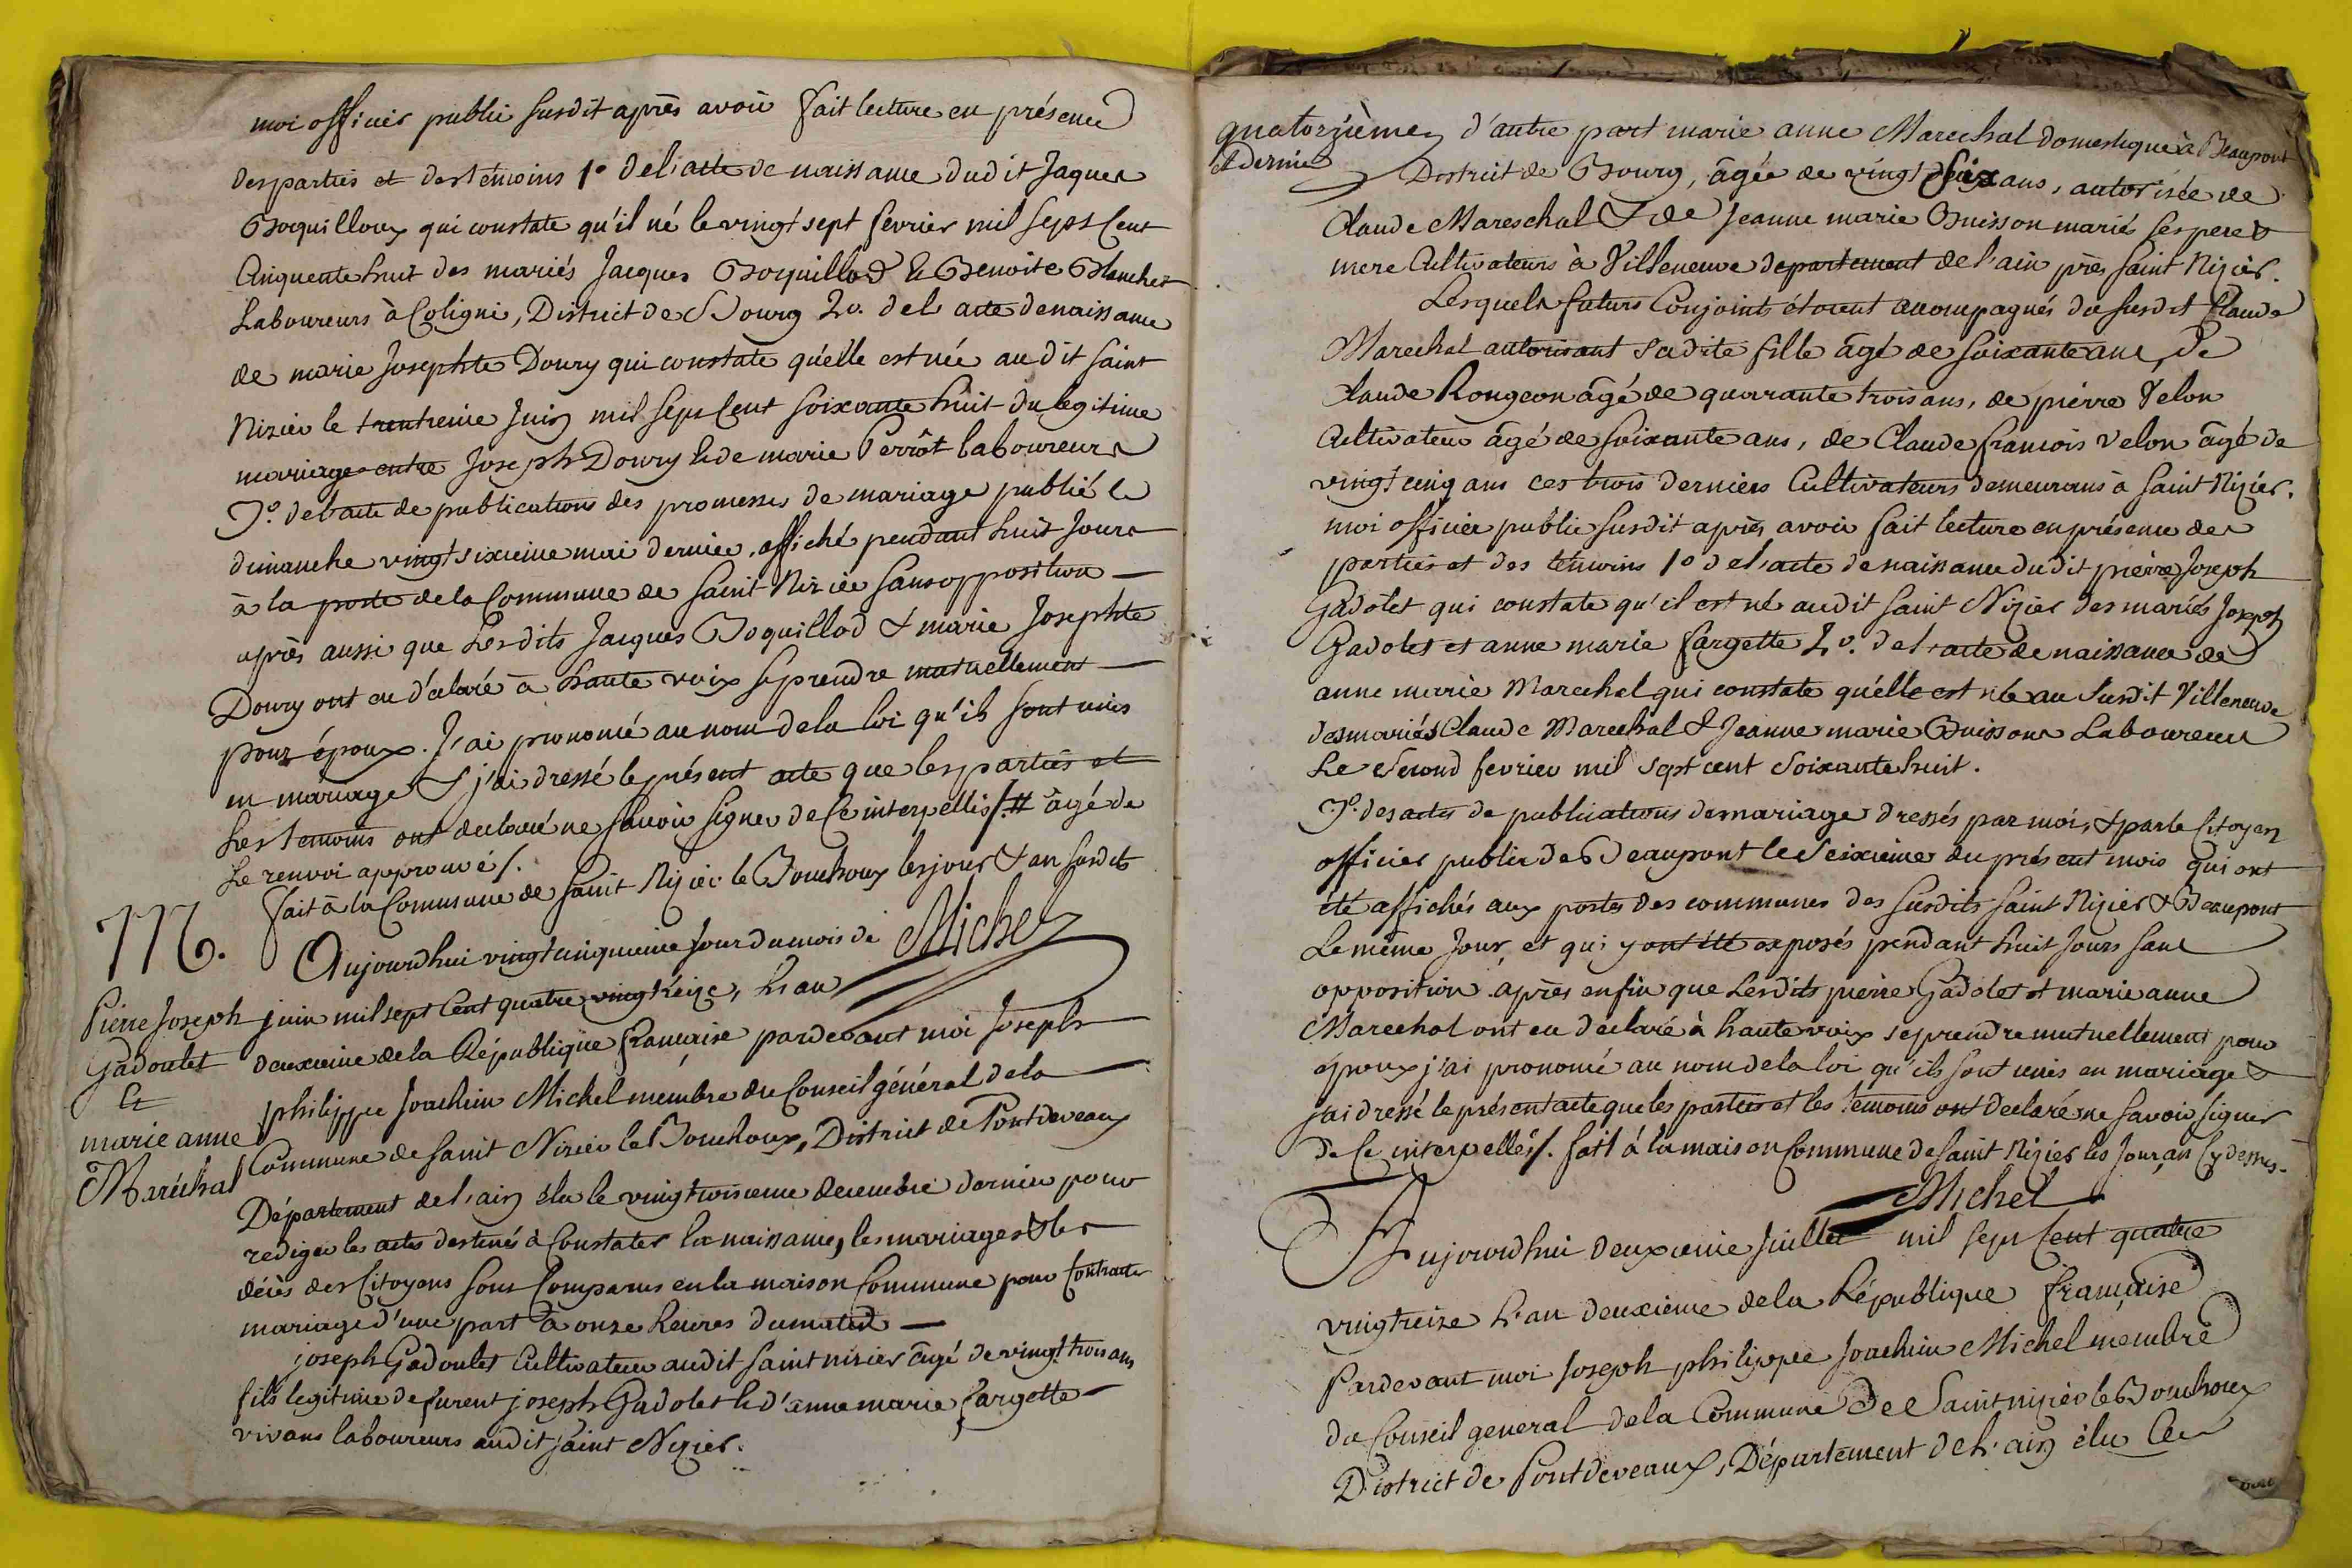 moi officier public susdit après avoir fait lecture en présence
des parties et des témoins 1º de l'acte de naissance dudit Jaques
Boquilloux qui constate qu'il né le vingt sept fevrier mil sept Cent
Cinquente huit des mariés Jacques Boquillod & Benoite Blanchet
Laboureurs à Coligni, District de Bourg 2º. de l'acte de naissance
de marie Josephte Doury qui constate qu'elle est née au dit saint
Nizier le trentieme Juin mil sept Cent soixante huit du legitime
mariage entre Joseph Doury & de marie Perrôt laboureurs
3º. de l'acte de publications des promesses de mariage publié le
dimanche vingt sixieme mai dernier, affiché pendant huit Jours
à la porte de la Commune de saint Nizier sans opposition —
après aussi que Lesdits Jacques Boquillod & marie Josephte
Doury ont eu déclaré à haute voix se prendre mutuellement —
pour époux. J'ai prononcé au nom de la loi qu'ils sont unis
en mariage & j'ai dressé le présent acte que les parties et
Les temoins ont declaré ne savoir signer de Ce interpellés /. # âgé de
Le renvoi approuvé /.
Fait à la Commune de saint Nizier le Bouchoux les jour & an susdits
Michel
M.
Pierre Joseph
Gadoulet
&
marie anne
Maréchal
Aujourdhui vingt cinquieme Jour du mois de
juin mil sept Cent quatre vingt treize, L'an
deuxieme de la République francaise pardevant moi Joseph
philippe Joachim Michel membre du Conseil général de la
Commune de saint Nizier le Bouchoux, District de Pontdevaux
Département de l'ain élu le vingt troisieme decembre dernier pour
rediger les actes destinés à Constater la naissance, les mariages & les
décès des Citoyens sont Comparus en la maison Commune pour Contracter
mariage d'une part à onze heures du matin —
joseph Gadoulet Cultivateur audit saint nizier âgé de vingt trois ans
fils legitime de furent joseph Gadolet & d'anne marie fargette —
vivans laboureurs audit saint Nizier.
quatorzième d'autre part marie anne Marechal domestique à Beaupont
et dernier
District de Bourg, âgée de vingt six ans, autorisée de
Claude Mareschal & de Jeanne marie Buisson mariés ses pere &
mere Cultivateurs à Villeneuve departement de l'ain près saint Nizier.
Lesquels futurs Conjoints étoient accompagnés du susdit Claude
Marechal autorisant sadite fille âgé de soixante ans, de
Claude Rongeon âgé de quarante trois ans, de pierre Velon
Cultivateur âgé de soixante ans, de Claude francois Velon âgé de
vingt cinq ans ces trois derniers Cultivateurs demeurans à saint Nizier.
moi officier public susdit après avoir fait lecture en présence des
parties et des témoins 1º de l'acte de naissance dudit pierre Joseph
Gadôlet qui constate qu'il est né audit saint Nizier des mariés Joseph
Gadolet et anne marie fargette 2º. de l'acte de naissance de
anne marie Marechal qui constate qu'elle est née au susdit Villeneuve
des mariés Claude Marechal & Jeanne marie Buisson Laboureurs
Le second fevrier mil sept cent soixante huit.
3º. des actes de publications de mariage dressés par moi, & par le Citoyen
officier public de Beaupont le seixieme du présent mois qui ont
été affichés aux portes des communes des susdits saint Nizier & Beaupont
Le même Jour, et qui y ont été exposés pendant huit Jours sans
opposition. après enfin que Lesdits pierre Gadolet et marie anne
Marechal ont eu declaré à haute voix se prendre mutuellement pour
époux j'ai prononcé au nom de la loi qu'ils sont unis en mariage &
j'ai dressé le présent acte que les parties et les temoins ont declaré ne savoir signer
de Ce interpellés /. fait à la maison Commune de saint Nizier les Jour, an cy dessus.
Michel
Aujourdhui deuxieme Juillet mil sept Cent quatre
vingt treize L'an deuxième de la République francaise
Pardevant moi Joseph philippe Joachim Michel membre
du Conseil general de la Commune de Saint nizier le Bouchoux
District de Pontdevaux, Département de L'ain élu le